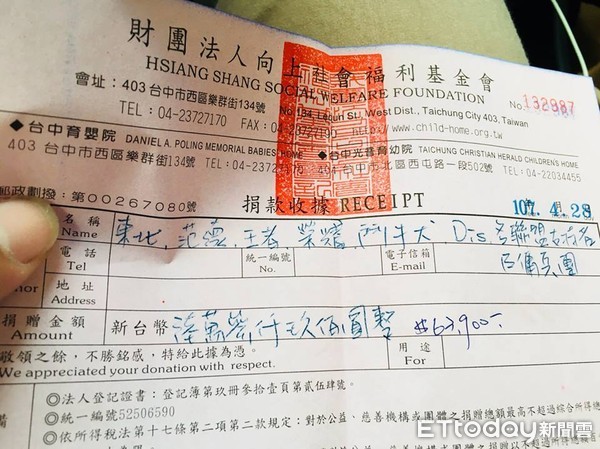 財團法人向上社會福利基金會
HSIANG SHANG SOCIAL WELFARE FOUNDATION
會址：403 台中市西區樂群街134號 No.134 Lequn St., West Dist., Taichung City 403, Taiwan
No 132987
TEL：04-23727170 FAX：04-23777190 http://www.child-home.org.tw
◆台中育嬰院 DANIEL A. POLING MEMORIAL BABIES' HOME
403 台中市西區樂群街134號 TEL：04-2372
◆台中光音育幼院 TAICHUNG CHRISTIAN HERALD CHILDREN'S HOME
台中市北區西屯路一段502號 TEL：04-22034455
郵政劃撥：第00267080號
捐款收據 RECEIPT
107. 4. 28
名稱 Name
王者 榮耀 鬥牛犬 Dis 聯盟
兵團
電話 Tel
統一編號 No.
電子信箱 E-mail
nor
地址 Address
捐贈金額 Amount
新台幣 仟玖佰圓整 $63,900-
敬領之餘，不勝銘感，特給此據為憑。
We appreciated your donation with respect.
用途 For
◎法人登記證書：登記簿第玖冊參拾壹頁第貳伍肆號。
◎統一編號52506590
◎依所得稅法第十七條第二項第二款規定：對於公益、慈善機構或團體之捐贈總額最高不超過綜合所得總
備
ETtoday新聞雲